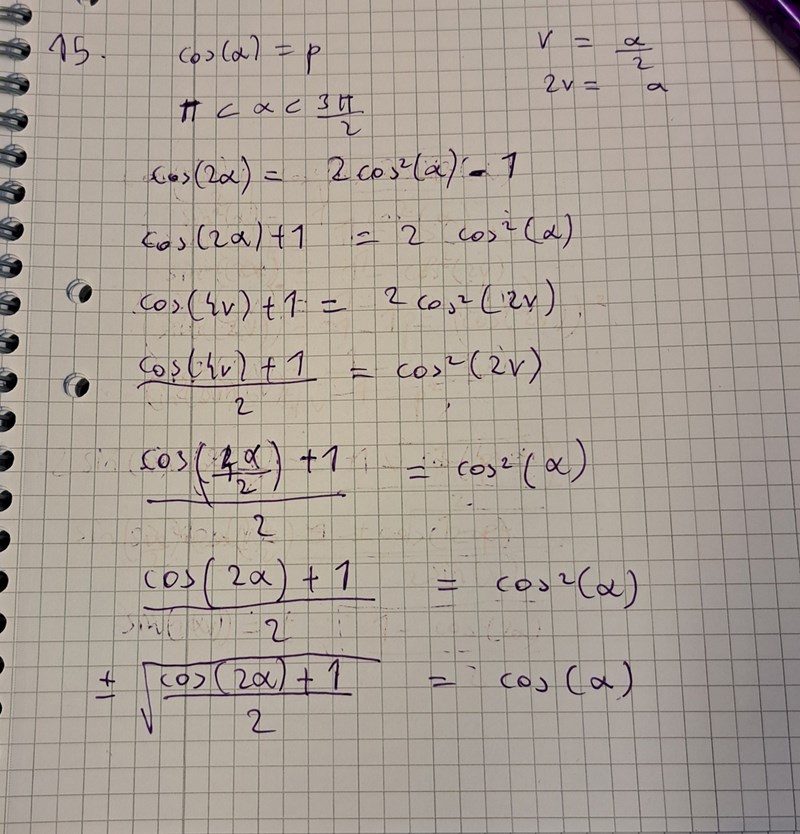 15. cos(α) = p
v = α/2
2v = α
π < α < 3π/2
cos(2α) = 2cos²(α) - 1
cos(2α)+1 = 2 cos²(α)
cos(4v)+1 = 2cos²(2v)
(cos(4v)+1)/2 = cos²(2v)
(cos(4α/2)+1)/2 = cos²(α)
(cos(2α)+1)/2 = cos²(α)
± √((cos(2α)+1)/2) = cos(α)